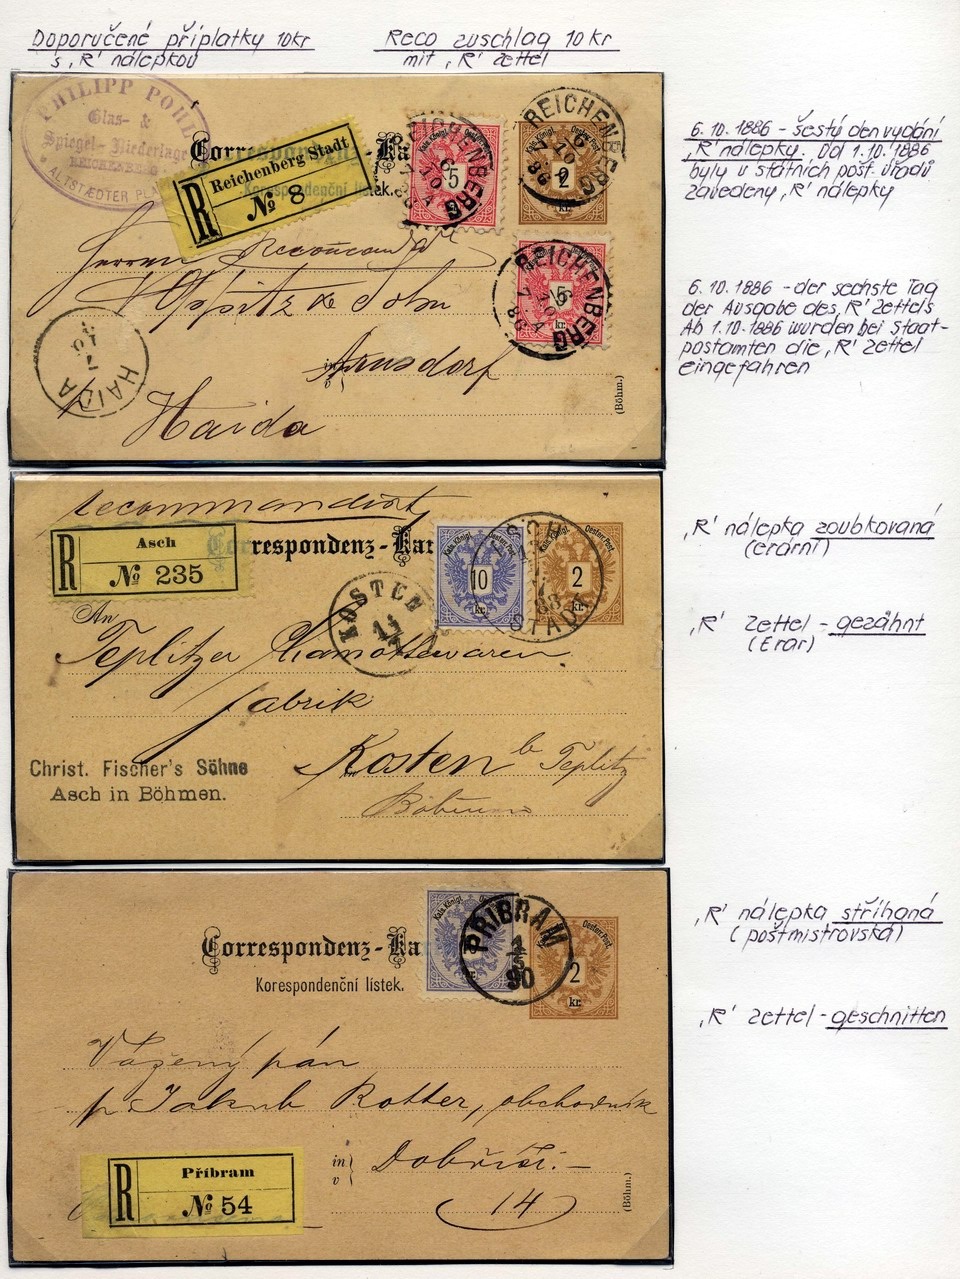 Doporučené příplatky 10kr
s ,R' nálepkou
Reco zuschlag 10 kr
mit ,R' Zettel
PHILIPP POHL
Glas- &
Spiegel-Niederlage
REICHENBERG
ALTSTÆDTER
Correspondenz-Ka
Korespondenční lístek.
R
Reichenberg Stadt
№ 8
REICHENBERG
5
REICHENBERG
2
kr.
REICHENBERG
5
kr.
Herrn
Oppitz & Sohn
in
v
Arnsdorf
Haida
HAIDA
(Böhm.)
6.10.1886 - šestý den vydání
,R' nálepky. Od 1.10.1886
byly u státních pošt. úřadů
zavedeny ,R' nálepky
6.10.1886 - der sechste Tag
der Ausgabe des ,R' Zettels
Ab 1.10.1886 wurden bei Staat-
postamten die ,R' Zettel
eingefahren
recommandirt
R
Asch
№ 235
Correspondenz-Kar
10
kr.
2
kr.
ASCH
STADT
KOSTEN
An
Teplitzer Chamottewaren
fabrik
Kosten b Teplitz
Böhmen
Christ. Fischer's Söhne
Asch in Böhmen.
,R' nálepka zoubkovaná
(erární)
,R' Zettel - gezähnt
(Erar)
Correspondenz-Ka
Korespondenční lístek.
PŘIBRAM
1
5
90
2
kr.
Vážený pán
p Jakub Rotter, obchodník
in
v
Dobříši.-
14
(Böhm.)
R
Příbram
№ 54
,R' nálepka stříhaná
(poštmistrovská)
,R' Zettel - geschnitten